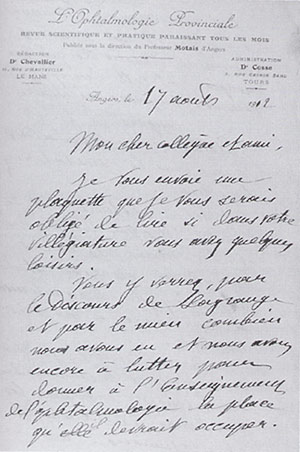 L'Ophtalmologie Provinciale
REVUE SCIENTIFIQUE ET PRATIQUE PARAISSANT TOUS LES MOIS
Publiée sous la direction du Professeur Motais d'Angers
RÉDACTION
Dr Chevallier
LE MANS
ADMINISTRATION
Dr Cosse
TOURS
Angers, le 17 août 1912
Mon cher collègue et ami,
Je vous envoie une
plaquette que je vous serais
obligé de lire si dans votre
villégiature vous avez quelques
loisirs.
Vous y verrez, par
le discours de Lagrange
et par le mien combien
nous avons eu et nous avons
encore à lutter pour
donner à l'Enseignement
de l'ophtalmologie la place
qu'elle devrait occuper.